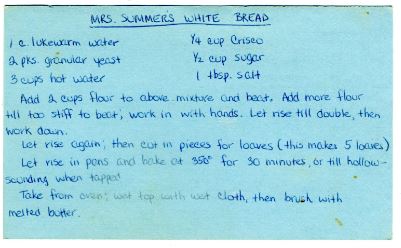 MRS. SUMMER'S WHITE BREAD
1 c. lukewarm water ¼ cup Crisco
2 pks. granular yeast ½ cup sugar
3 cups hot water 1 tbsp. salt
Add 2 cups flour to above mixture and beat. Add more flour
till too stiff to beat; work in with hands. Let rise till double, then
work down.
Let rise again; then cut in pieces for loaves (this makes 5 loaves)
Let rise in pans and bake at 350° for 30 minutes, or till hollow-
sounding when tapped
Take from oven; wet top with wet cloth, then brush with
melted butter.